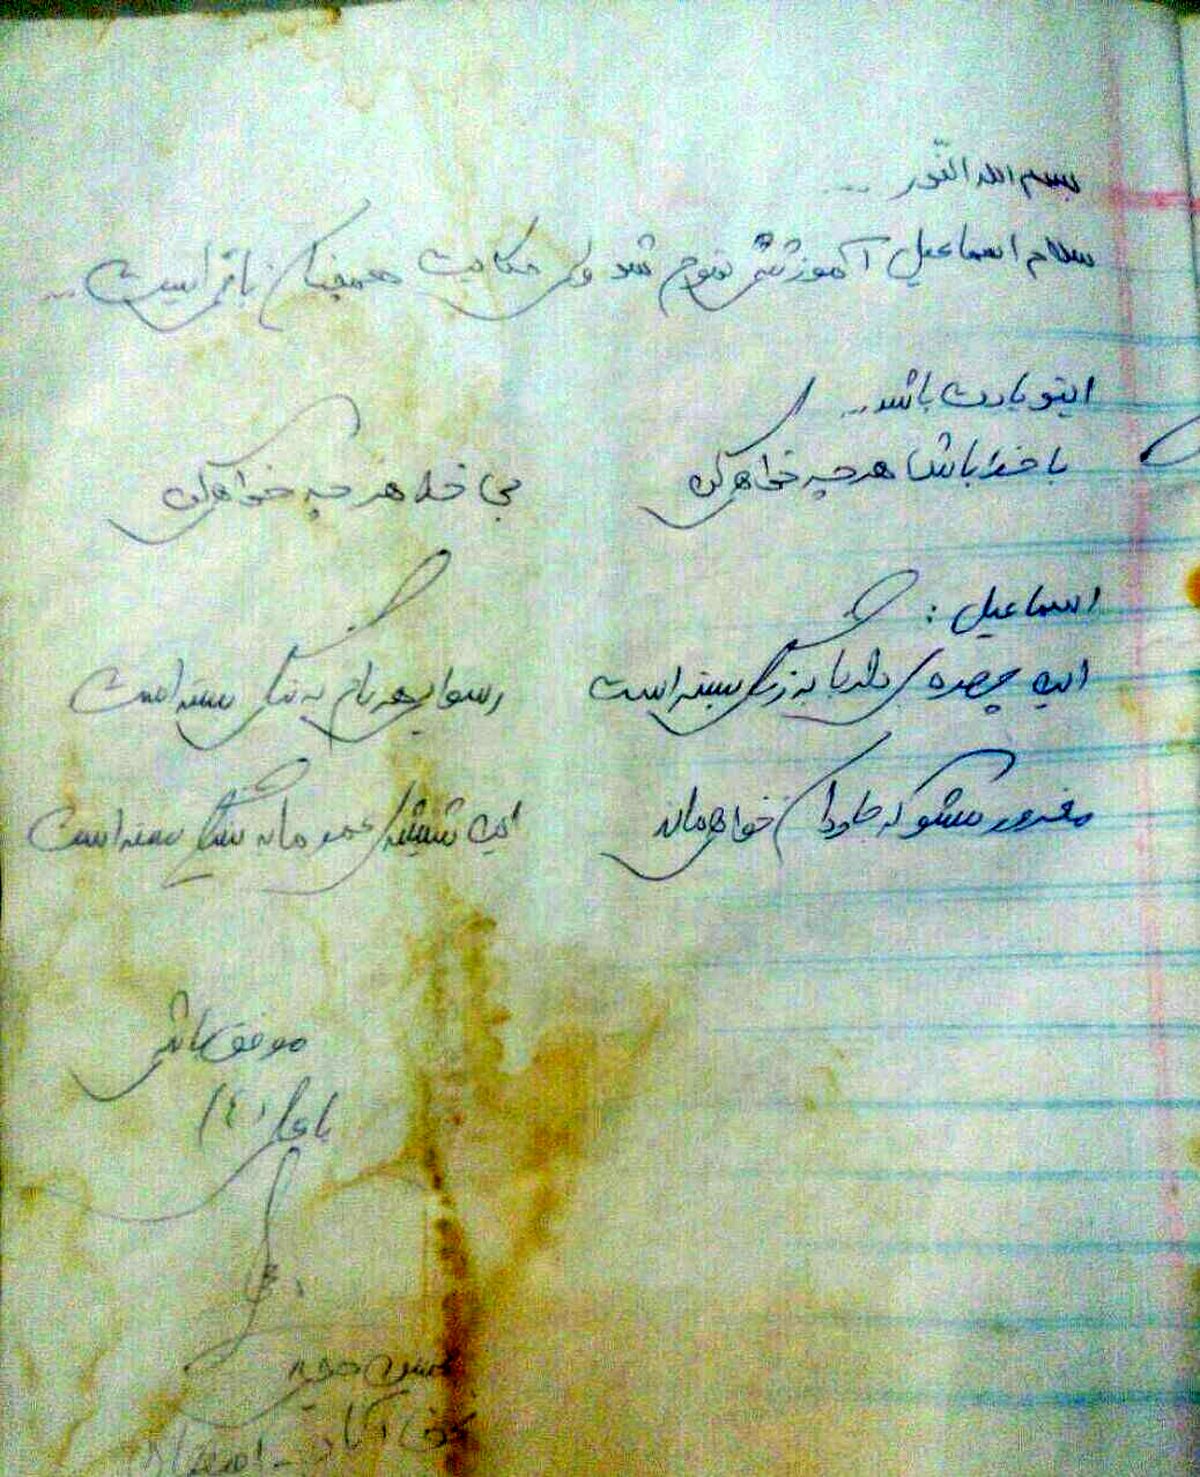 بسم الله النّور ...
سلام اسماعیل آموزشی تموم شد ولی حکایت همچنان باقی است ...
اینو یادت باشد ...
با خدا باش هر چه خواهی کن
بی خدا هر چه خواهی کن
اسماعیل :
این چهره‌ی دلربا به زنگی بسته است
رسوایی هر نام به ننگی بسته است
مغرور مشو که جاودان خواهی ماند
این شیشه‌ی عمر ما به سنگی بسته است
موفق باشی
یا علی (ع)